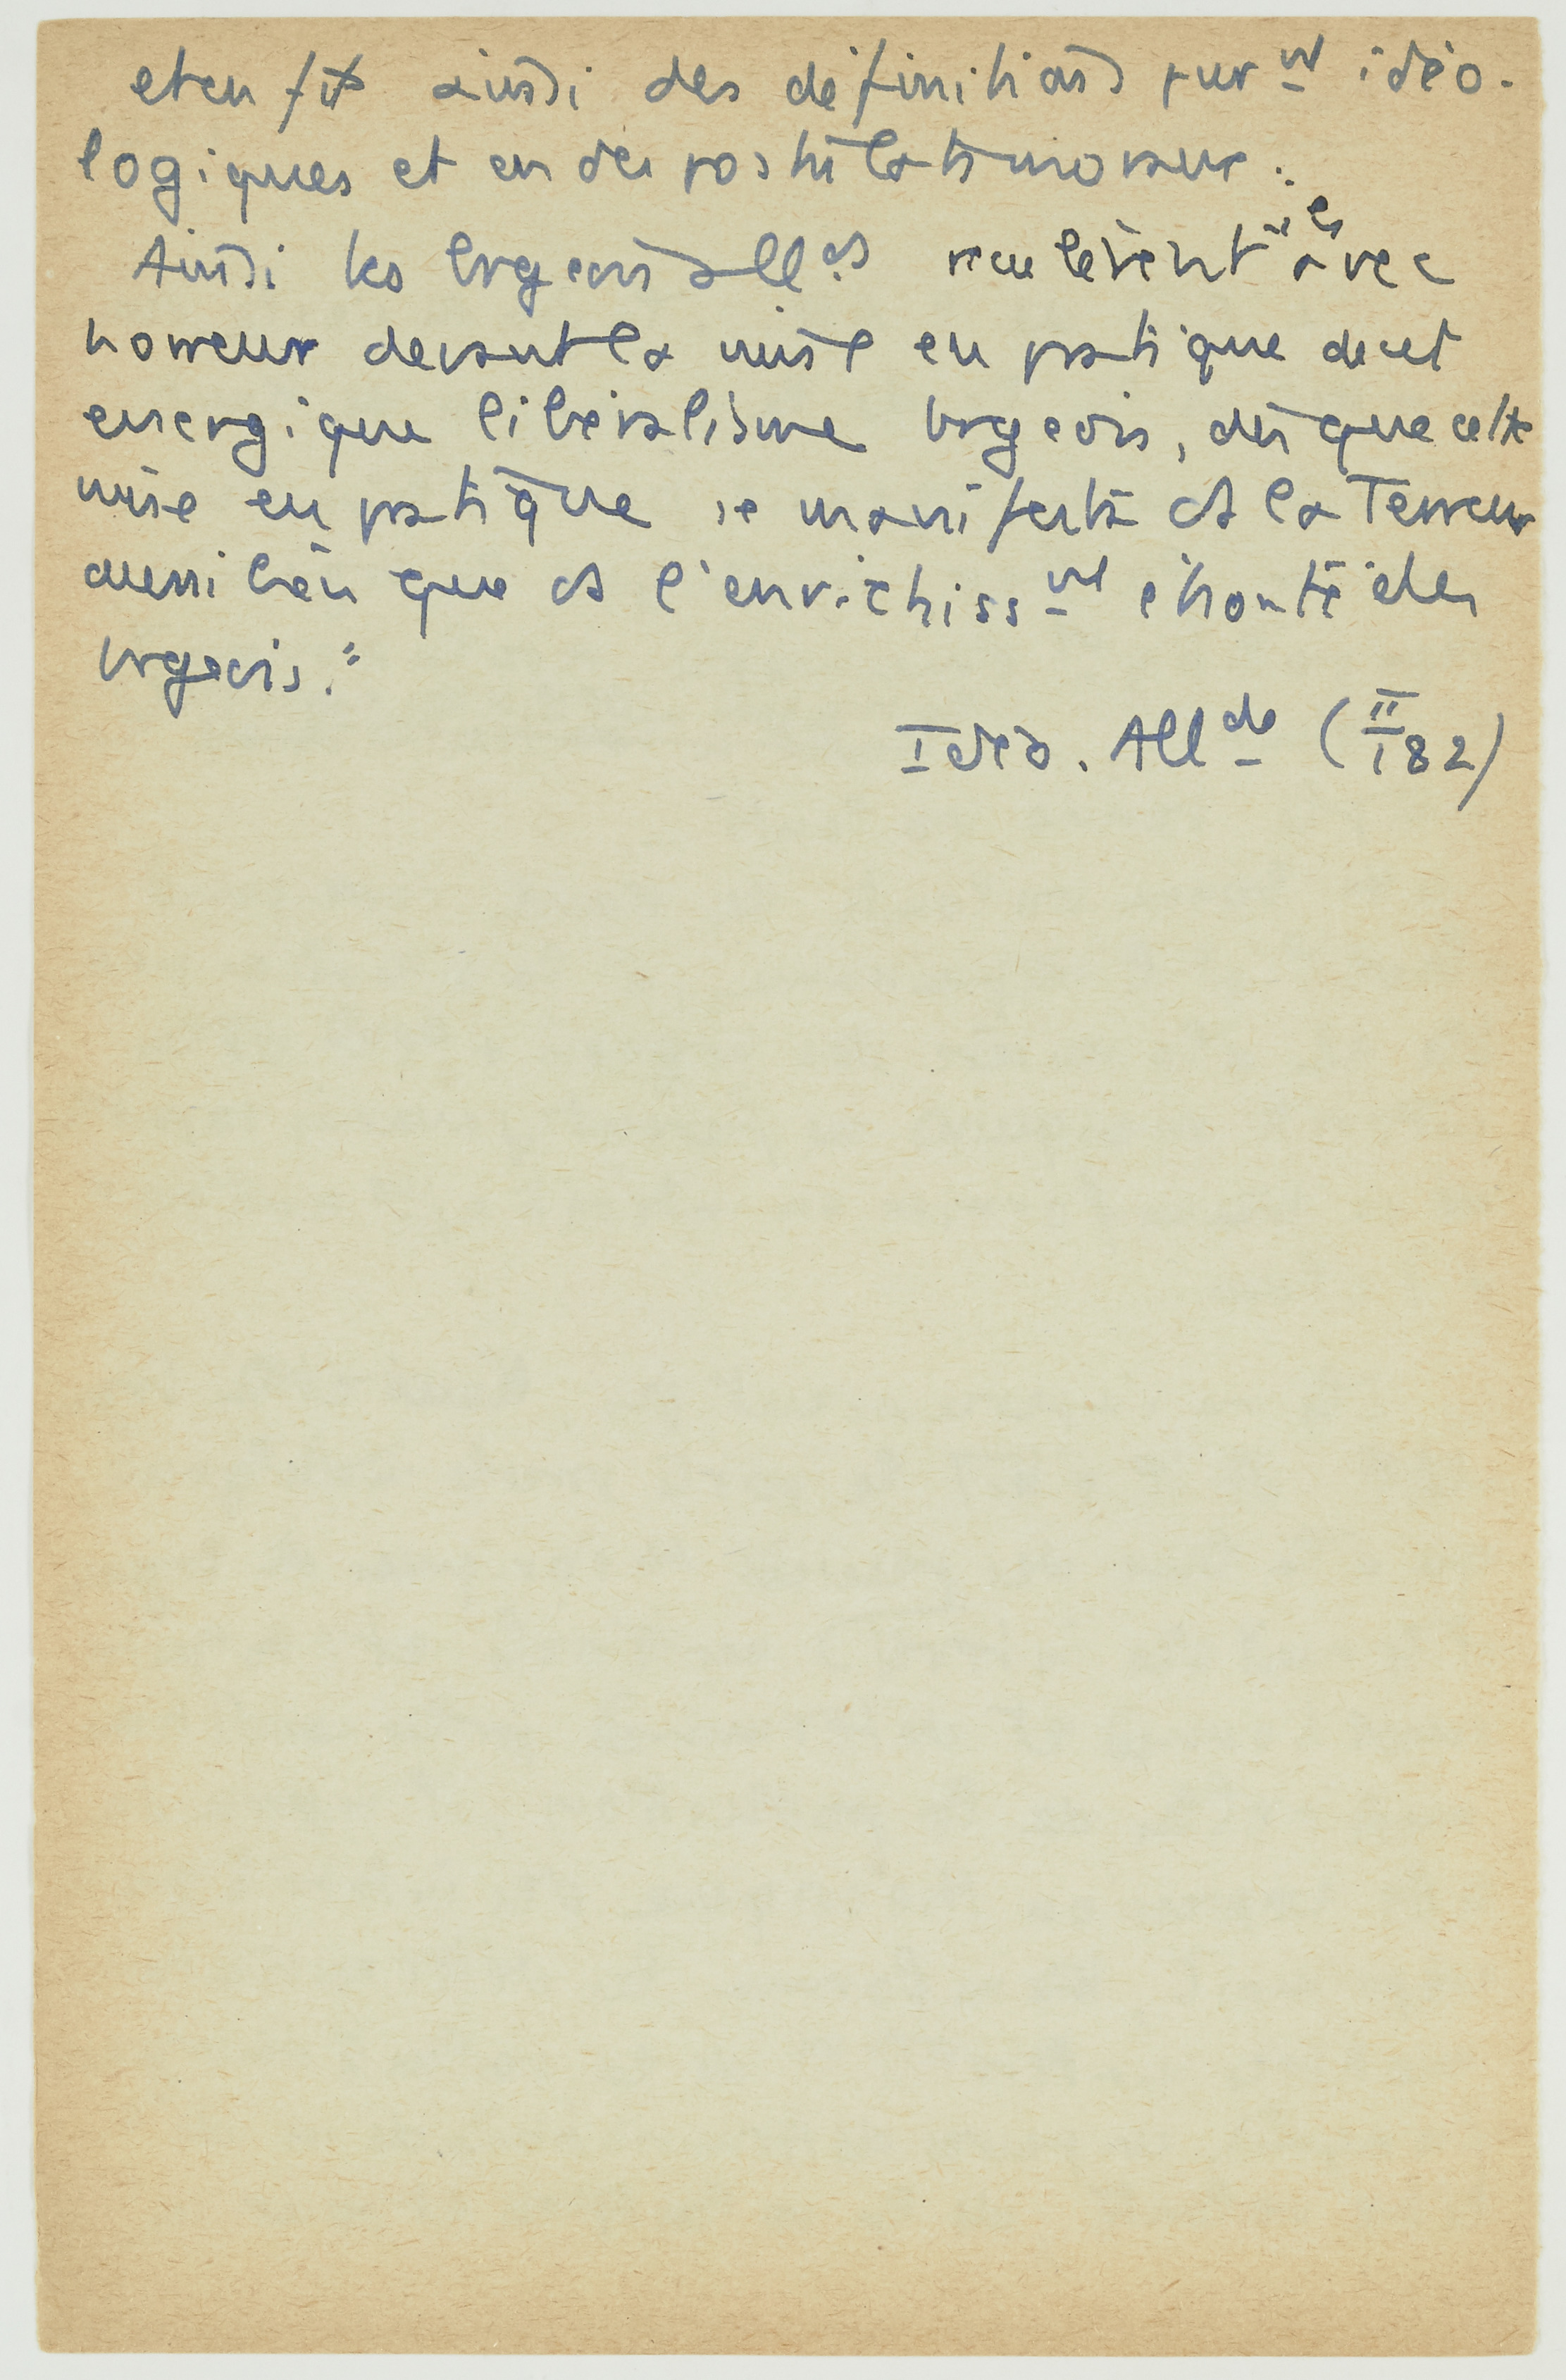 et en fit ainsi des définitions purmt idéo-
logiques et en des postulats moraux.
Ainsi les brgeois allds reculèrent "ils avec
horreur devant la mise en pratique de cet
energique libéralisme brgeois, dès que cette
mise en pratique se manifesta ds la Terreur
aussi bien que ds l'enrichissmt éhonté des
brgeois."
Idéo. Allde (II 182)